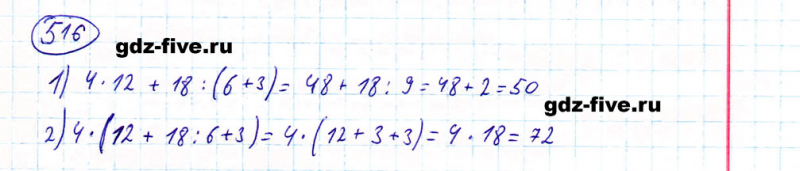 516
gdz-five.ru
1) 4 · 12 + 18 : (6 + 3) = 48 + 18 : 9 = 48 + 2 = 50
gdz-five.ru
2) 4 · (12 + 18 : 6 + 3) = 4 · (12 + 3 + 3) = 4 · 18 = 72